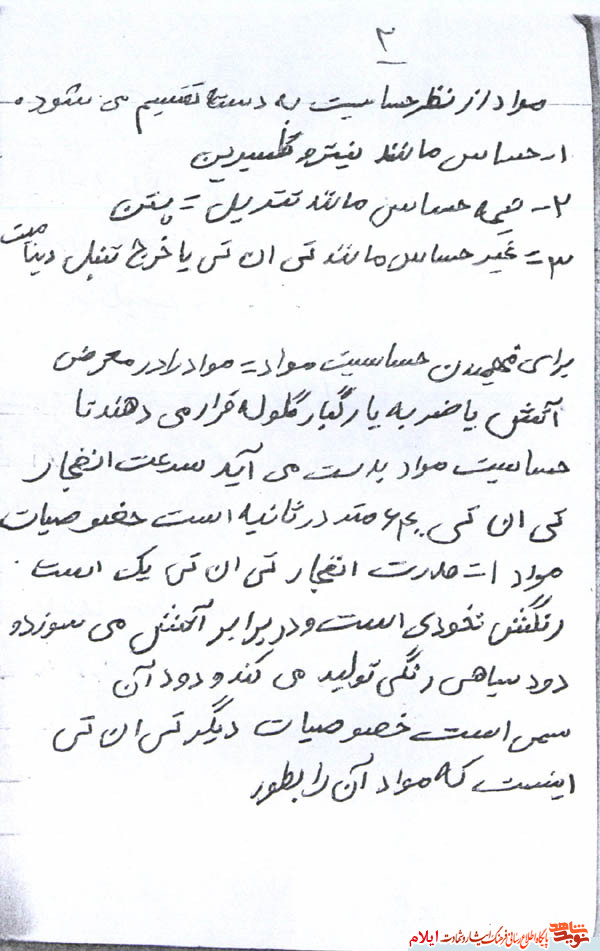 ۲
مواد از نظر حساسیت به دسته تقسیم می شود.
۱- حساس مانند نیترو گلسیرین
۲- نیمه حساس مانند تتریل - پتن
۳- غیر حساس مانند تی ان تی یا خرج تنبل دینامیت
برای فهمیدن حساسیت مواد - مواد را در معرض
آتش یا ضربه یا رگبار گلوله قرار می دهند تا
حساسیت مواد بدست می آید سرعت انفجار
تی ان تی متر در ثانیه است خصوصیات
مواد قدرت انفجار تی ان تی یک است.
رنگش نخودی است و در برابر آتش می سوزد و
دود سیاهی رنگی تولید می کند و دود آن
سمی است خصوصیات دیگر تی ان تی
اینست که مواد آن را بطور
نوید شاهد
پایگاه اطلاع رسانی فرهنگ ایثار و شهادت ایلام